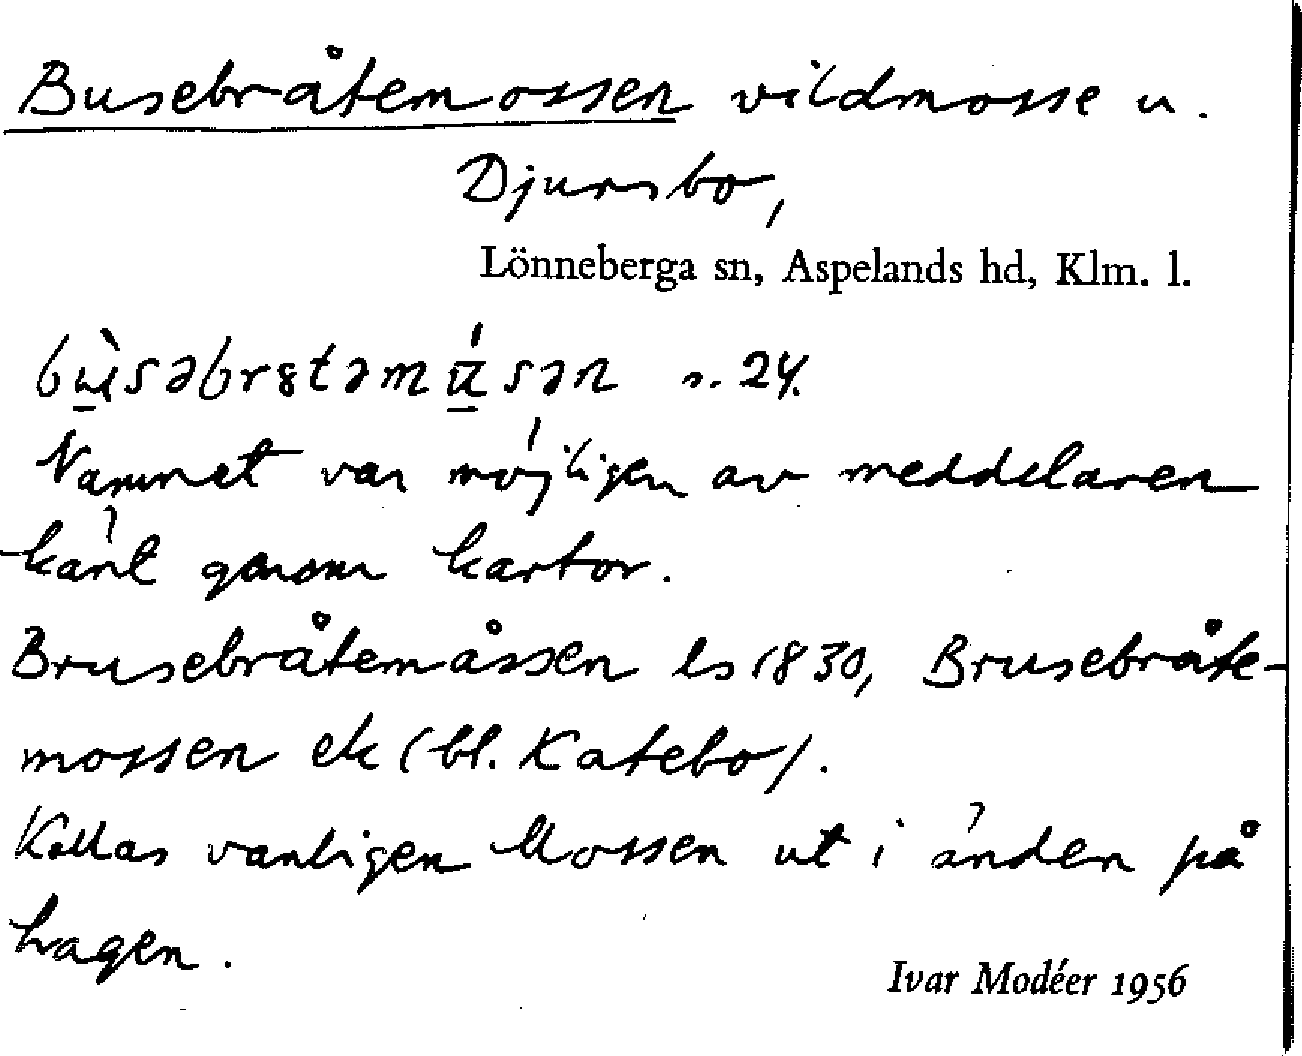 Busebråtemossen vildmosse u.
Djursbo,
Lönneberga sn, Aspelands hd, Klm. l.
s. 24.
Namnet var möjligen av meddelaren
känt genom kartor.
Brusebråtemåssen ls 1830, Brusebråte-
mossen ek (bl. Katebo).
Kallas vanligen Mossen ut i änden på
hagen.
Ivar Modéer 1956